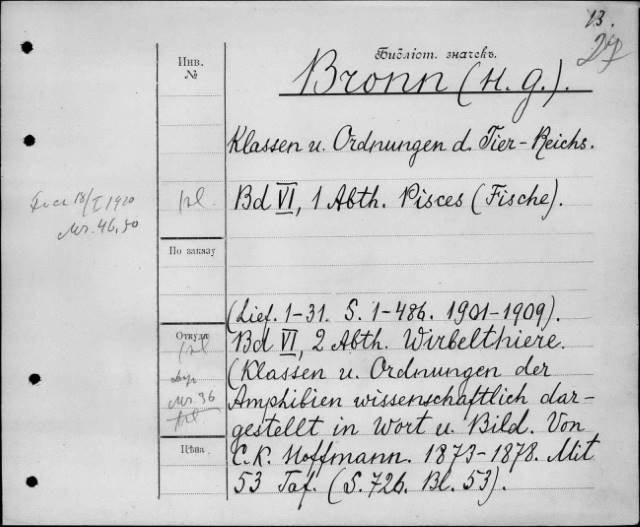 13.
27
Библіот. значекъ.
Bronn (H. G.).
Инв.
№
Klassen u. Ordnungen d. Tier-Reichs.
pl.
Bd VI, 1 Abth. Pisces (Fische).
18/I 1910
Mr. 46,50
По заказу
(Lief. 1-31. S. 1-486. 1901-1909).
Откуда
Bd VI, 2 Abth. Wirbelthiere.
(Klassen u. Ordnungen der
Amphibien wissenschaftlich dar-
Mr. 36
gestellt in Wort u. Bild. Von
Цѣна
C. K. Hoffmann. 1873-1878. Mit
53 Taf. (S. 726. Bl. 53).